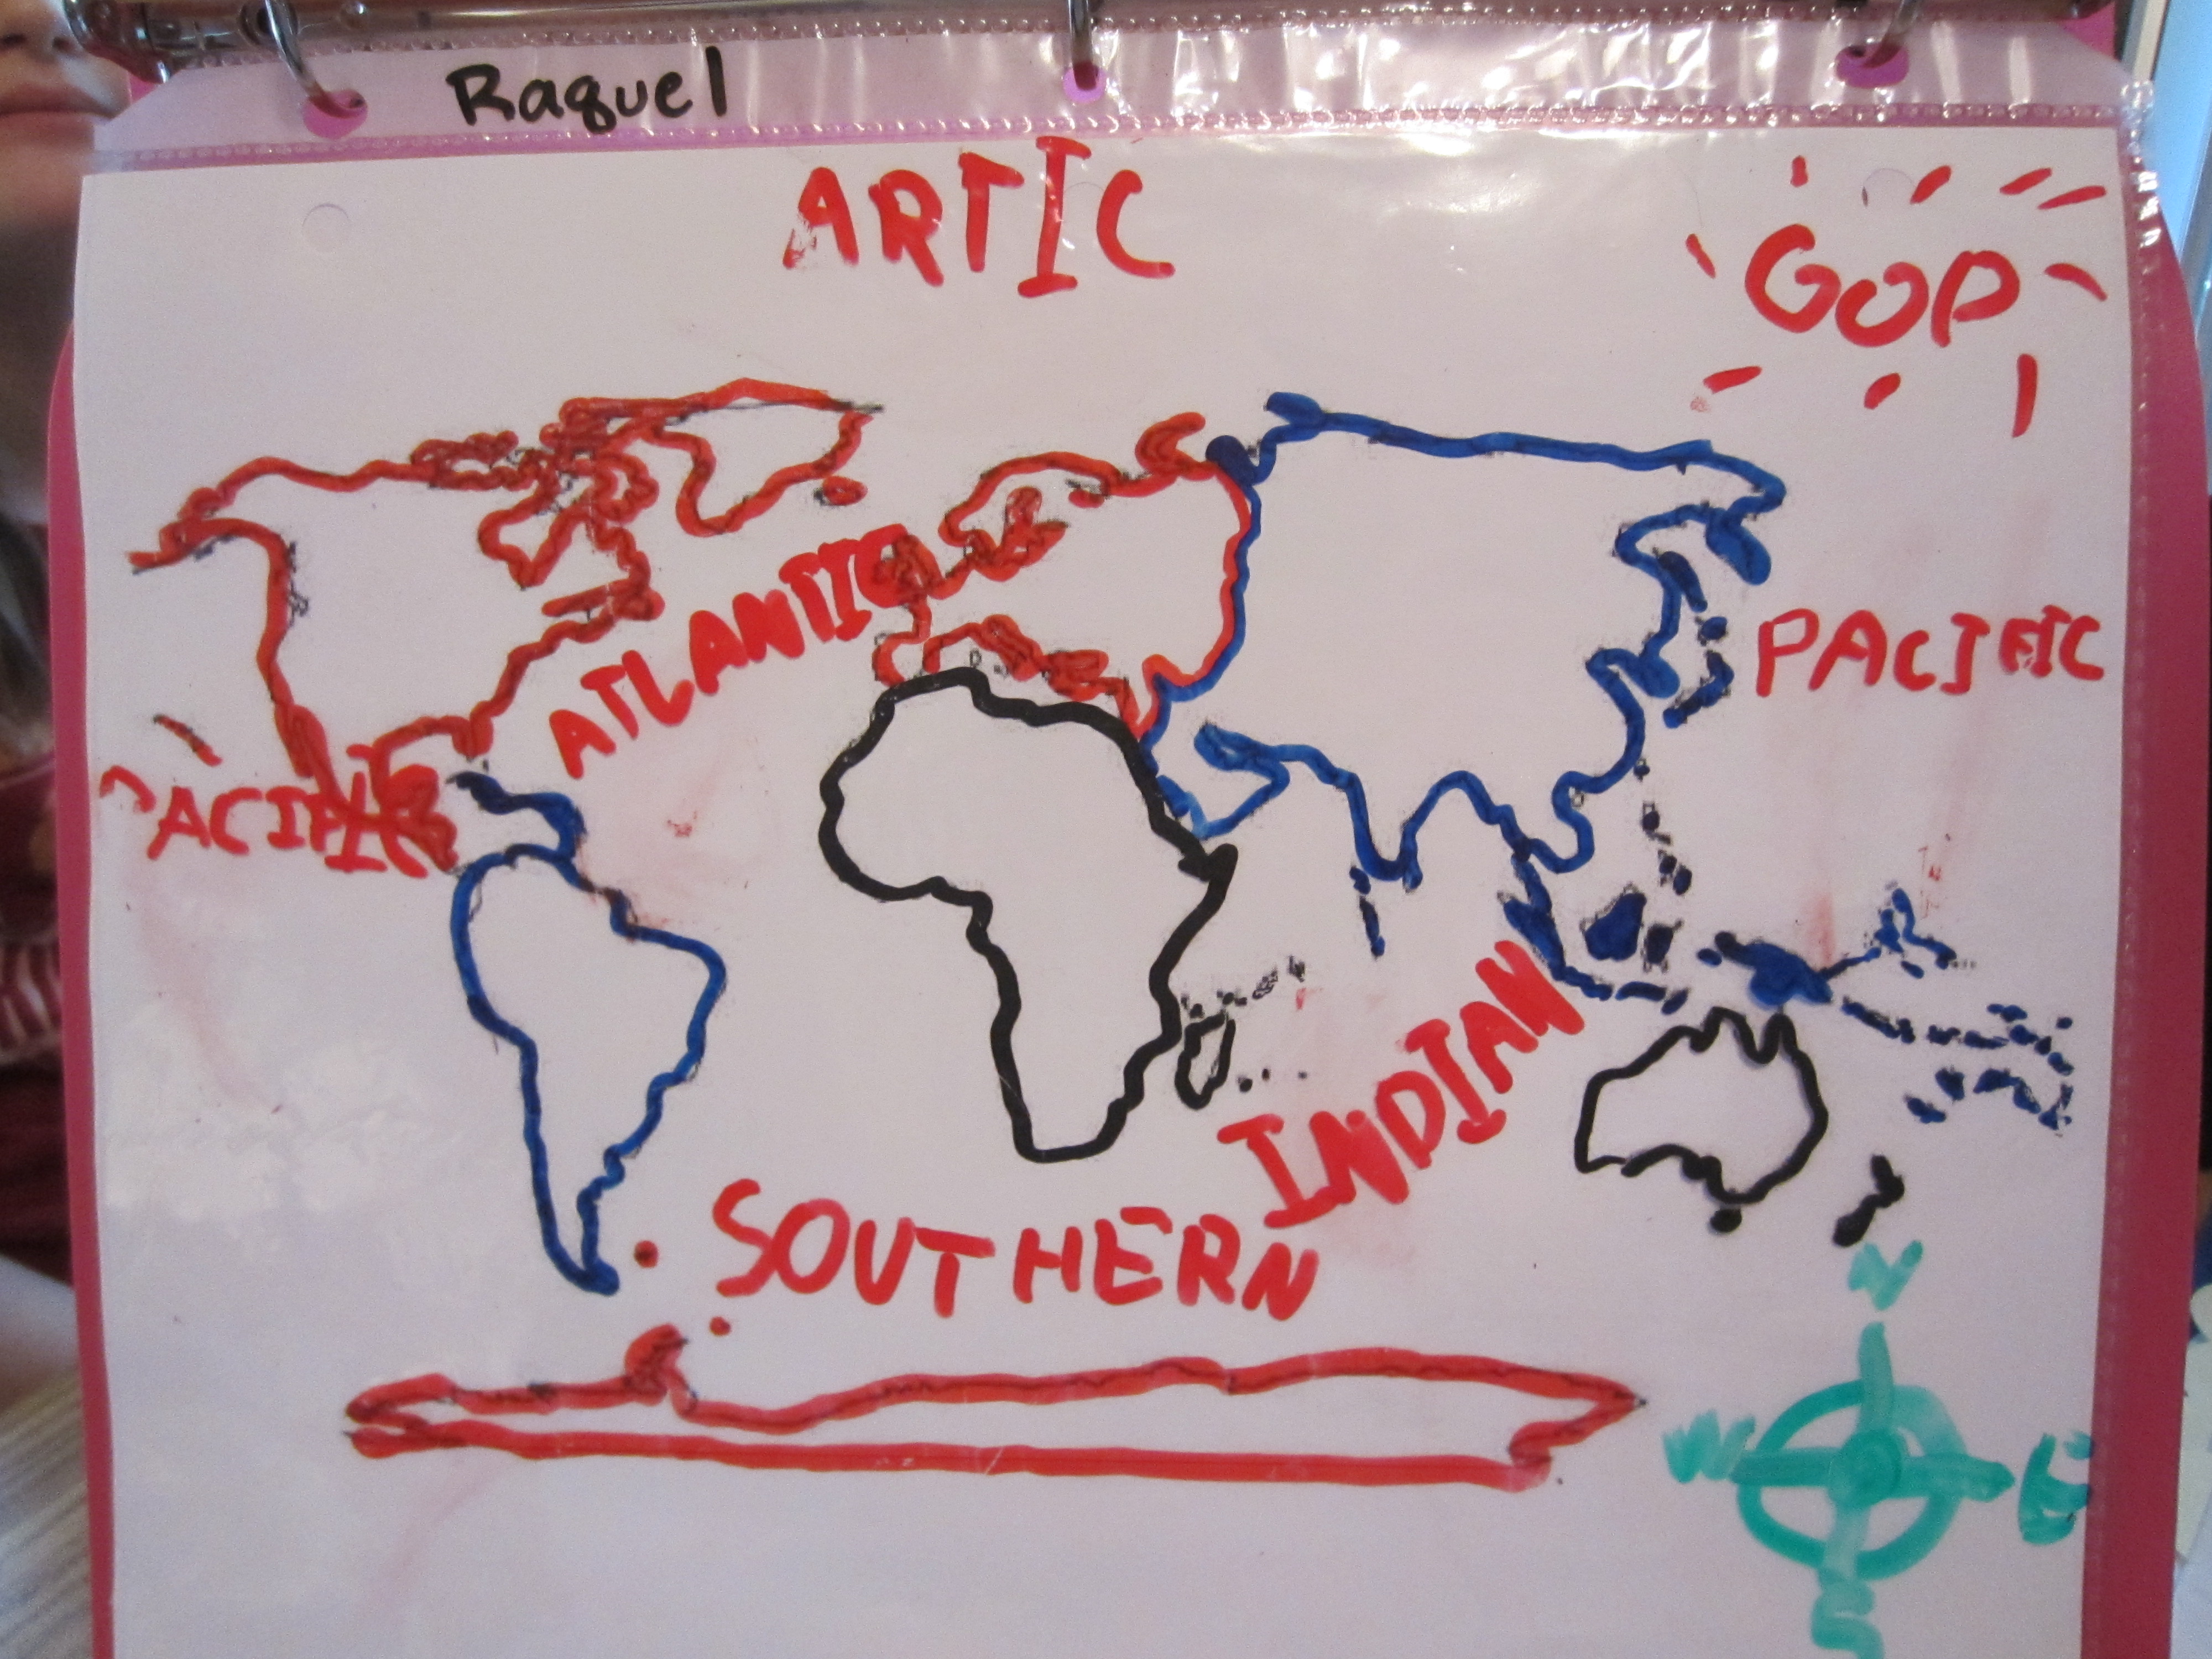 Raquel
ARTIC
GOD
ATLANTIC
PACIFIC
PACIFIC
INDIAN
SOUTHERN
N
W E
S